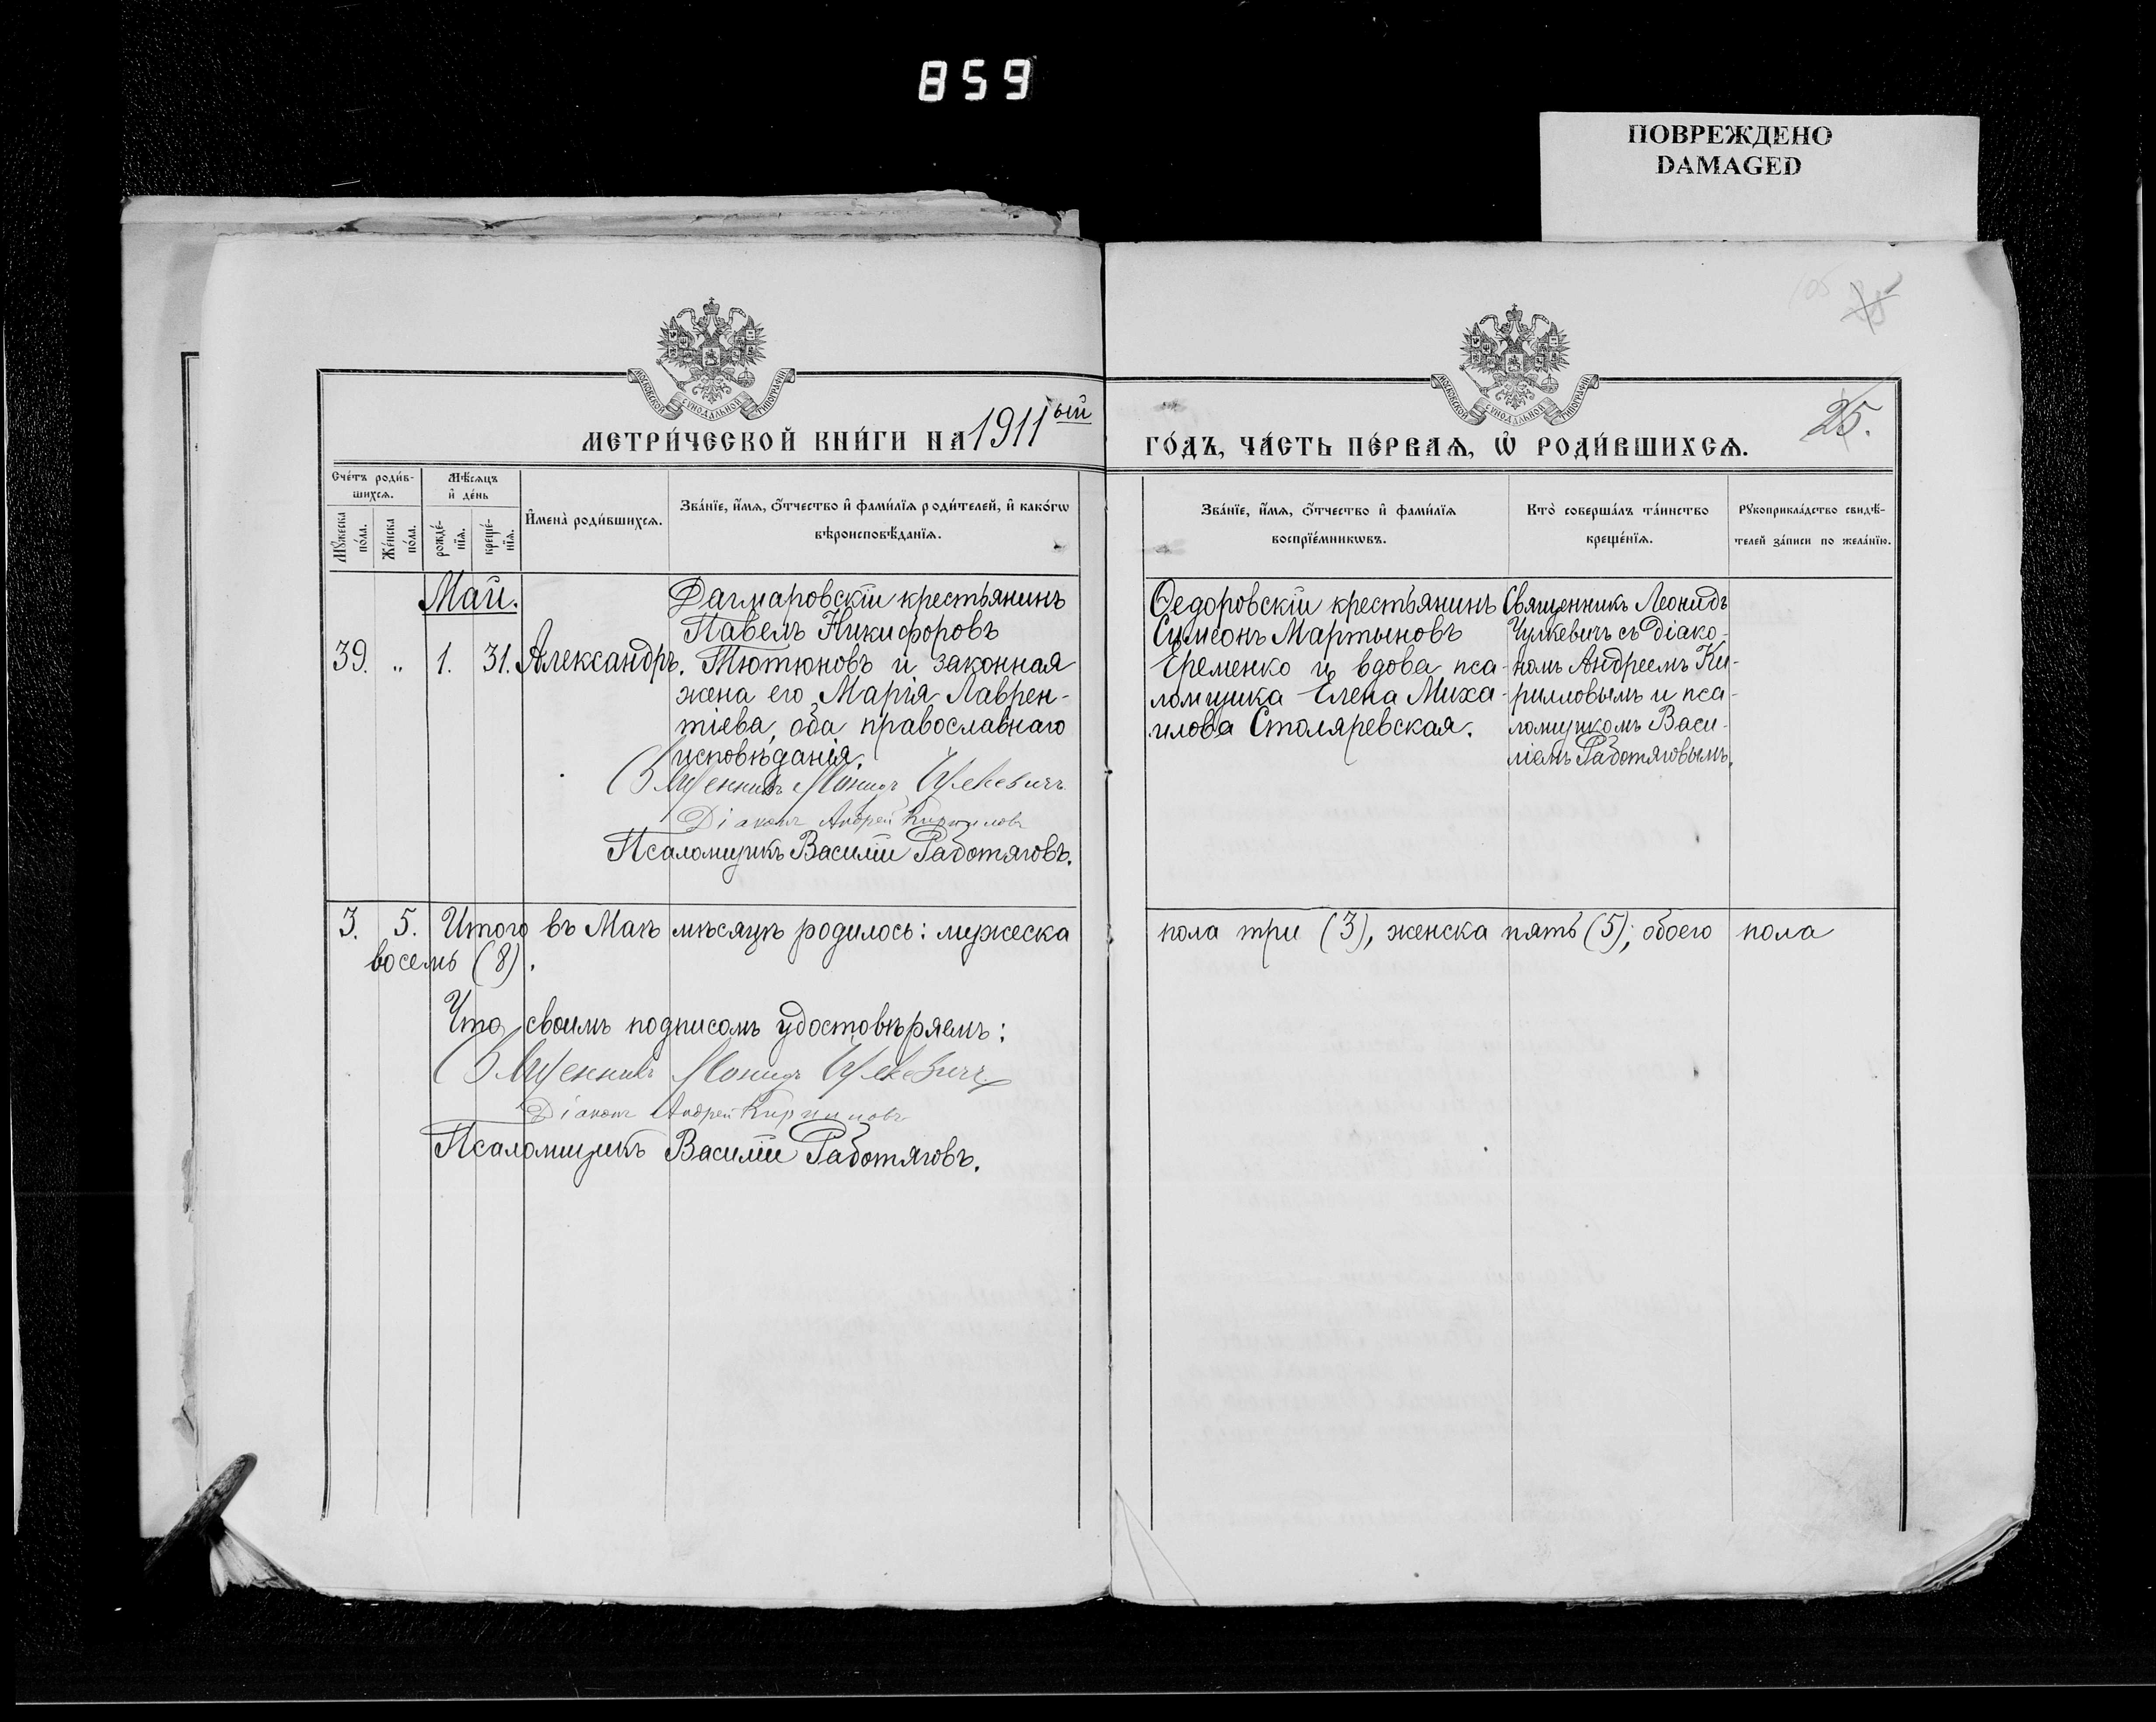 859
ПОВРЕЖДЕНО
DAMAGED
МОСКОВСКОЙ СѴНОДАЛЬНОЙ ТИПОГРАФІИ
МОСКОВСКОЙ СѴНОДАЛЬНОЙ ТИПОГРАФІИ
МЕТРИ́ЧЕСКОЙ КНИ́ГИ НА 1911ый
ГО́ДЪ, ЧА́СТЬ ПЕ́РВАѦ, Ѡ҆ РОДИ́ВШИХСѦ.
25.
Сче́тъ роди́в-
шихсѧ.
Мѣ́сѧцъ
и҆ де́нь
Мꙋ́жеска
по́ла.
Же́нска
по́ла.
рожде́-
нїѧ.
креще́-
нїѧ.
И҆мена̀ роди́вшихсѧ.
Зва́нїе, и҆́мѧ, ѻ҆́тчество и҆ фами́лїѧ роди́телей, и҆ како́гѡ
вѣроисповѣ́данїѧ.
Зва́нїе, и҆́мѧ, ѻ҆́тчество и҆ фами́лїѧ
воспрїе́мникѡвъ.
Кто̀ соверша́лъ та́инство
креще́нїѧ.
Рꙋкоприкла́дство свидѣ́-
телей за́писи по жела́нїю.
Май.
39. „ 1. 31. Александръ.
Дагмаровскій крестьянинъ
Павелъ Никифоровъ
Тютюновъ и законная
жена его Марія Лаврен-
тіева, оба православнаго
исповѣданія.
Священникъ Леонидъ Чулкевичъ
Діаконъ Андрей Кирилловъ
Псаломщикъ Василій Работяговъ.
Ѳедоровскій крестьянинъ
Сѵмеонъ Мартыновъ
Еременко и вдова пса-
ломщика Елена Миха-
илова Столяревская.
Священникъ Леонидъ
Чулкевичъ съ діако-
номъ Андреемъ Ки-
рилловымъ и пса-
ломщикомъ Васи-
ліемъ Работяговымъ.
3. 5. Итого въ Маѣ мѣсяцѣ родилось: мужеска
пола три (3), женска пять (5), обоего пола
восемь (8).
Что своимъ подписомъ удостовѣряемъ:
Священникъ Леонидъ Чулкевичъ
Діаконъ Андрей Кирилловъ
Псаломщикъ Василій Работяговъ.